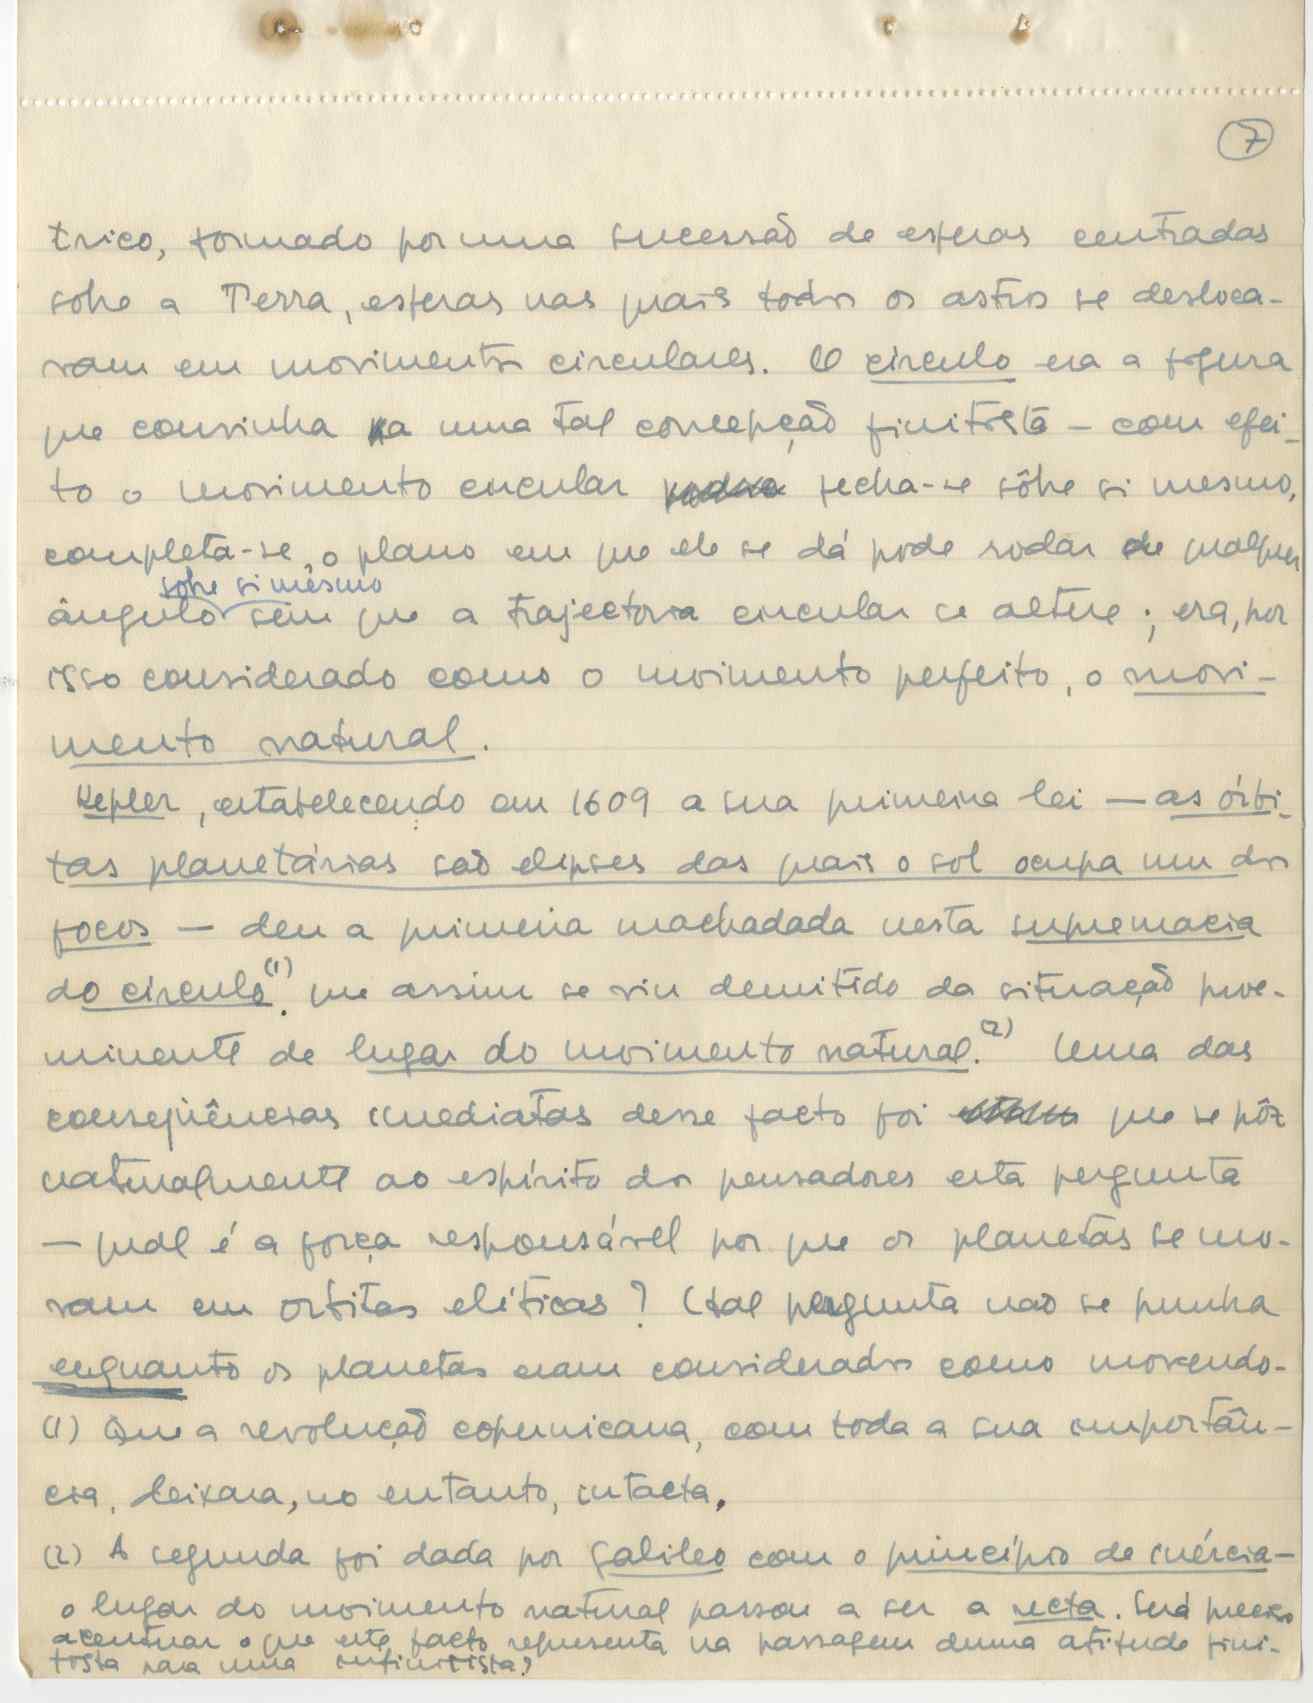 7
trico, formado por uma sucessão de esferas centradas
sobre a Terra, esferas nas quais todos os astros se desloca-
vam em movimentos circulares. O círculo era a figura
que convinha a uma tal concepção finitista — com efei-
to o movimento circular fecha-se sôbre si mesmo,
completa-se, o plano em que ele se dá pode rodar de qualquer
sobre si mesmo
ângulo sem que a trajectoria circular se altere; era, por
isso considerado como o movimento perfeito, o movi-
mento natural.
Kepler, estabelecendo em 1609 a sua primeira lei — as órbi-
tas planetárias são elipses das quais o sol ocupa um dos
focos — deu a primeira machadada nesta supremacia
do círculo(1). que assim se viu demitido da situação proe-
minente de lugar do movimento natural.(2) Uma das
conseqüências imediatas desse facto foi que se pôz
naturalmente ao espírito dos pensadores esta pergunta
— qual é a força responsável por que os planetas se mo-
vam em orbitas elíticas? (tal pergunta não se punha
enquanto os planetas eram considerados como movendo-
(1) Que a revolução copernicana, com toda a sua importân-
cia, deixara, no entanto, intacta.
(2) A segunda foi dada por Galileo com o princípio de inércia —
o lugar do movimento natural passou a ser a recta. Será preciso
acentuar o que este facto representa na passagem duma atitude fini-
tista para uma infinitista?